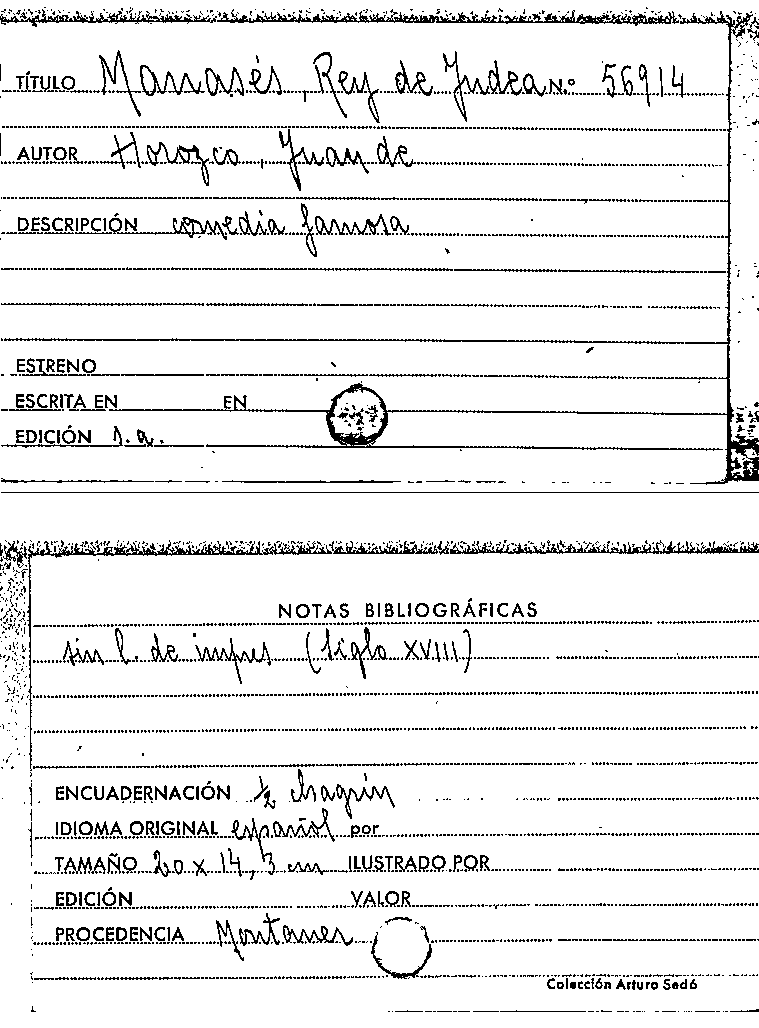 TÍTULO Manasés, Rey de Judea N.º 56914
AUTOR Horozco, Juan de
DESCRIPCIÓN comedia famosa
ESTRENO
ESCRITA EN EN
EDICIÓN s.a.
NOTAS BIBLIOGRÁFICAS
sin l. de impres (siglo XVIII)
ENCUADERNACIÓN ½ chagrín
IDIOMA ORIGINAL español por
TAMAÑO 20 x 14,3 cm ILUSTRADO POR
EDICIÓN VALOR
PROCEDENCIA Montaner
Colección Arturo Sedó